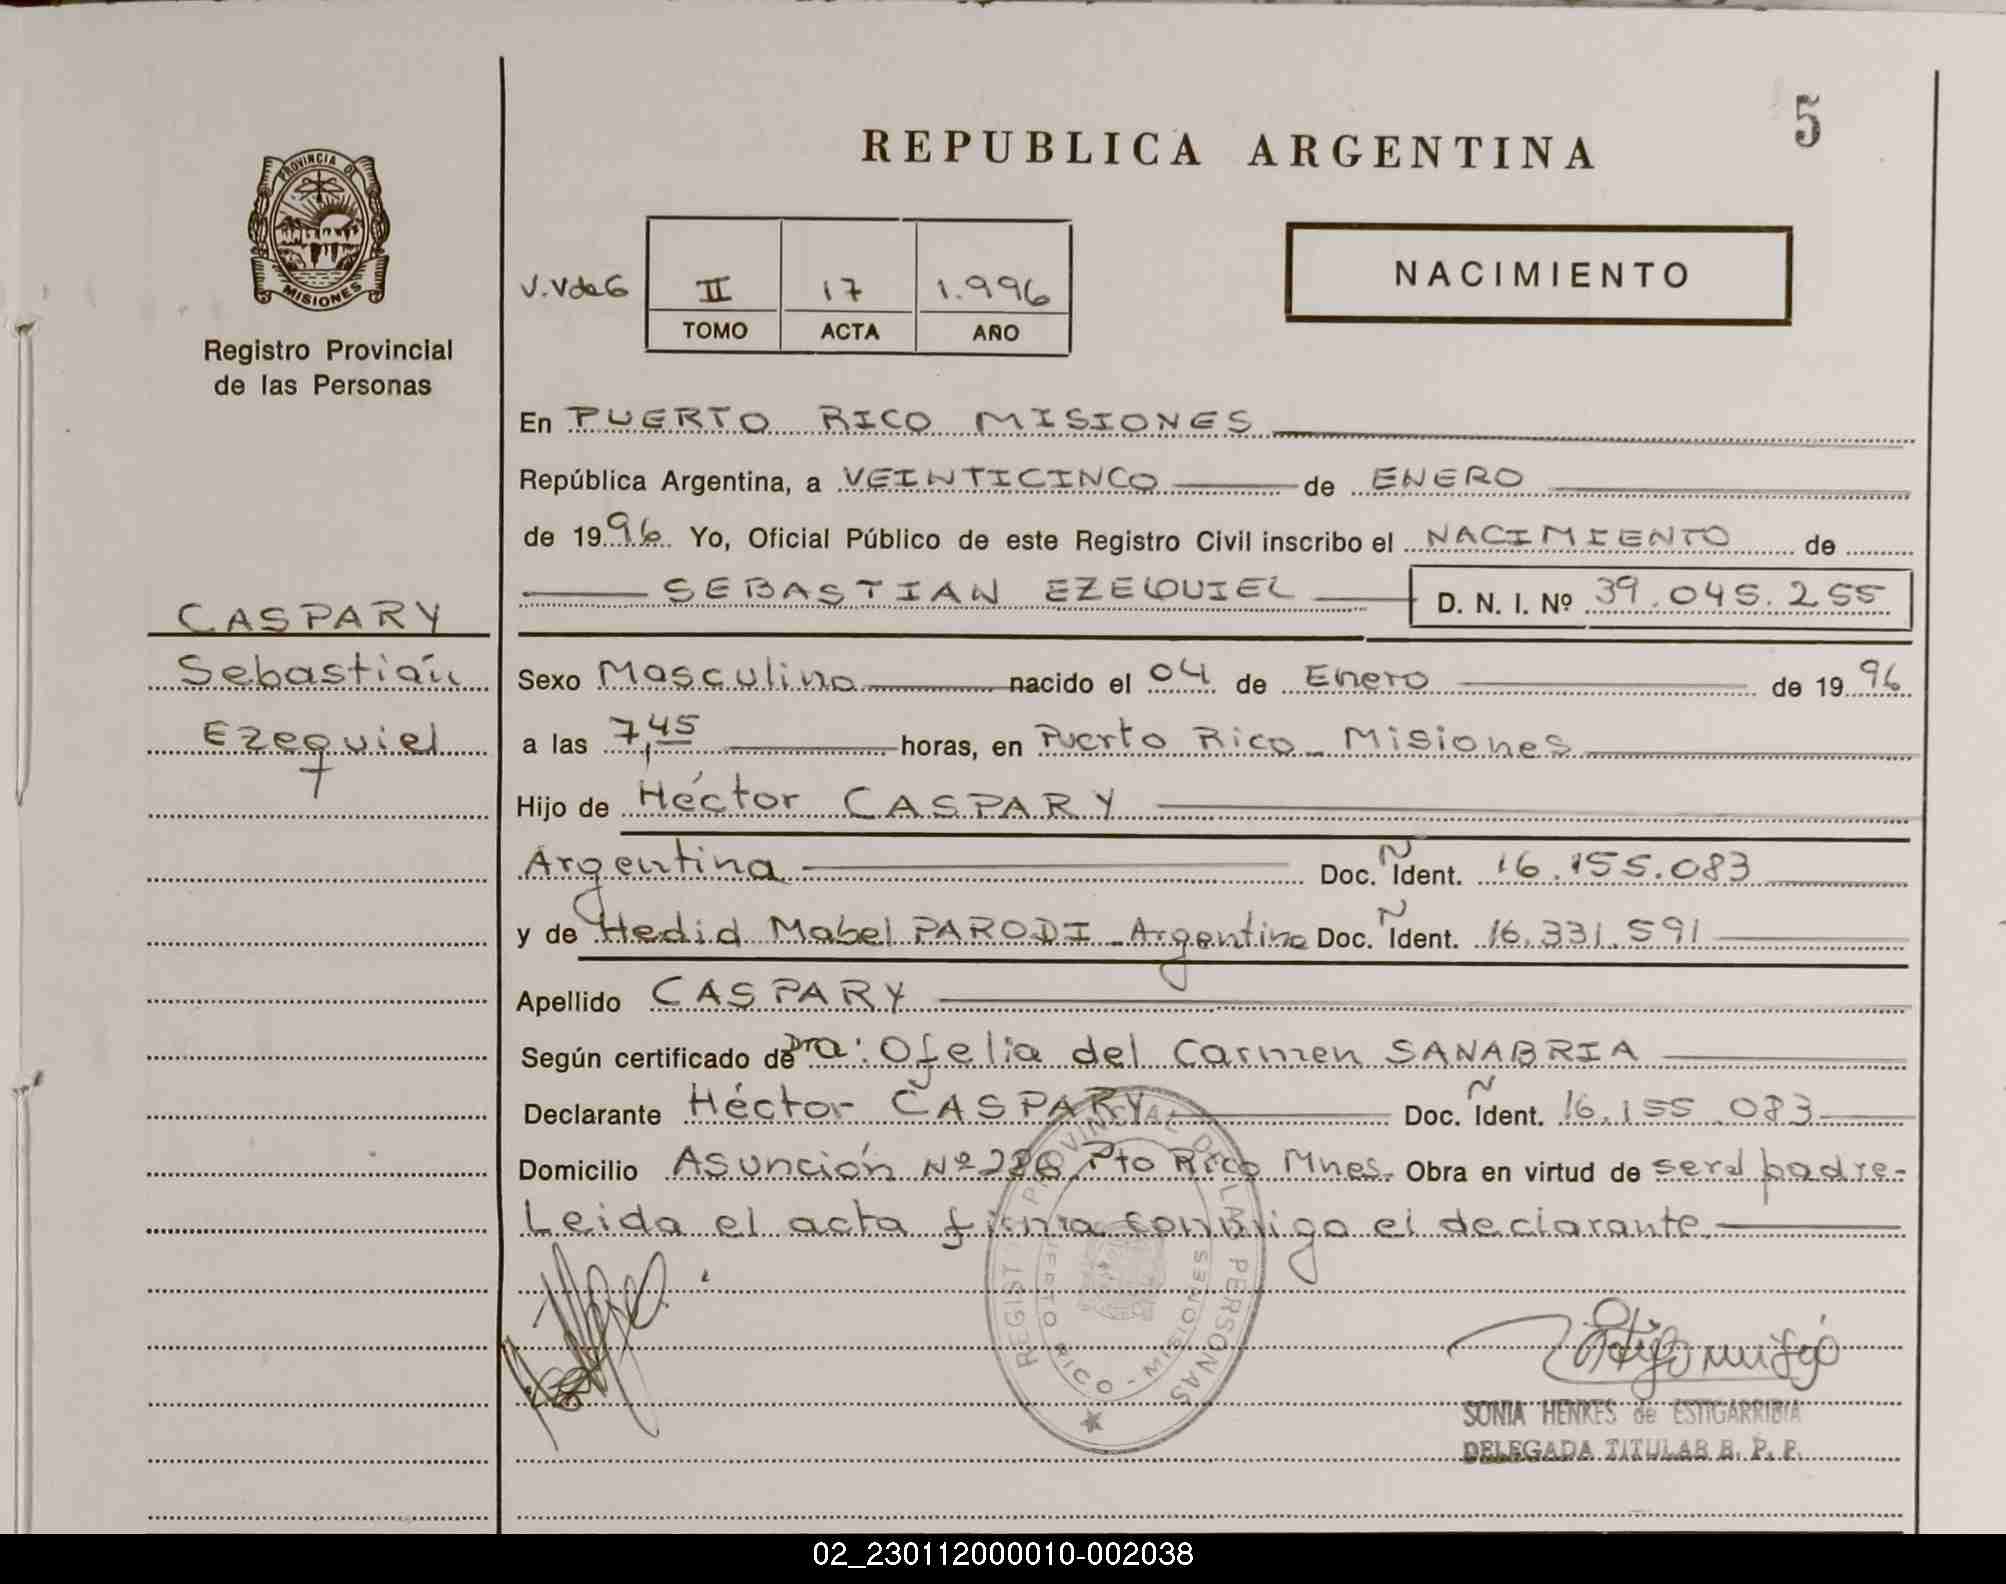 REPUBLICA ARGENTINA
5
PROVINCIA DE
MISIONES
Registro Provincial
de las Personas
V.VdeG
II 17 1.996
TOMO ACTA AÑO
NACIMIENTO
En PUERTO RICO MISIONES
República Argentina, a VEINTICINCO de ENERO
de 1996 Yo, Oficial Público de este Registro Civil inscribo el NACIMIENTO de
SEBASTIAN EZEQUIEL D. N. I. Nº 39.045.255
CASPARY
Sebastián
Ezequiel
Sexo Masculino nacido el 04 de Enero de 1996
a las 7,45 horas, en Puerto Rico - Misiones
Hijo de Héctor CASPARY
Argentina Doc. Ñ Ident. 16.155.083
y de Hedid Mabel PARODI - Argentina Doc. Ñ Ident. 16.331.591
Apellido CASPARY
Según certificado de Dra: Ofelia del Carmen SANABRIA
Declarante Héctor CASPARY Doc. Ñ Ident. 16.155.083
Domicilio Asunción Nº 226 Pto Rico Mnes. Obra en virtud de ser el padre-
Leida el acta firma conmigo el declarante.
REGISTRO PROVINCIAL DE LAS PERSONAS
PUERTO RICO - MISIONES
SONIA HENKES de ESTIGARRIBIA
DELEGADA TITULAR R. P. P.
02_230112000010-002038